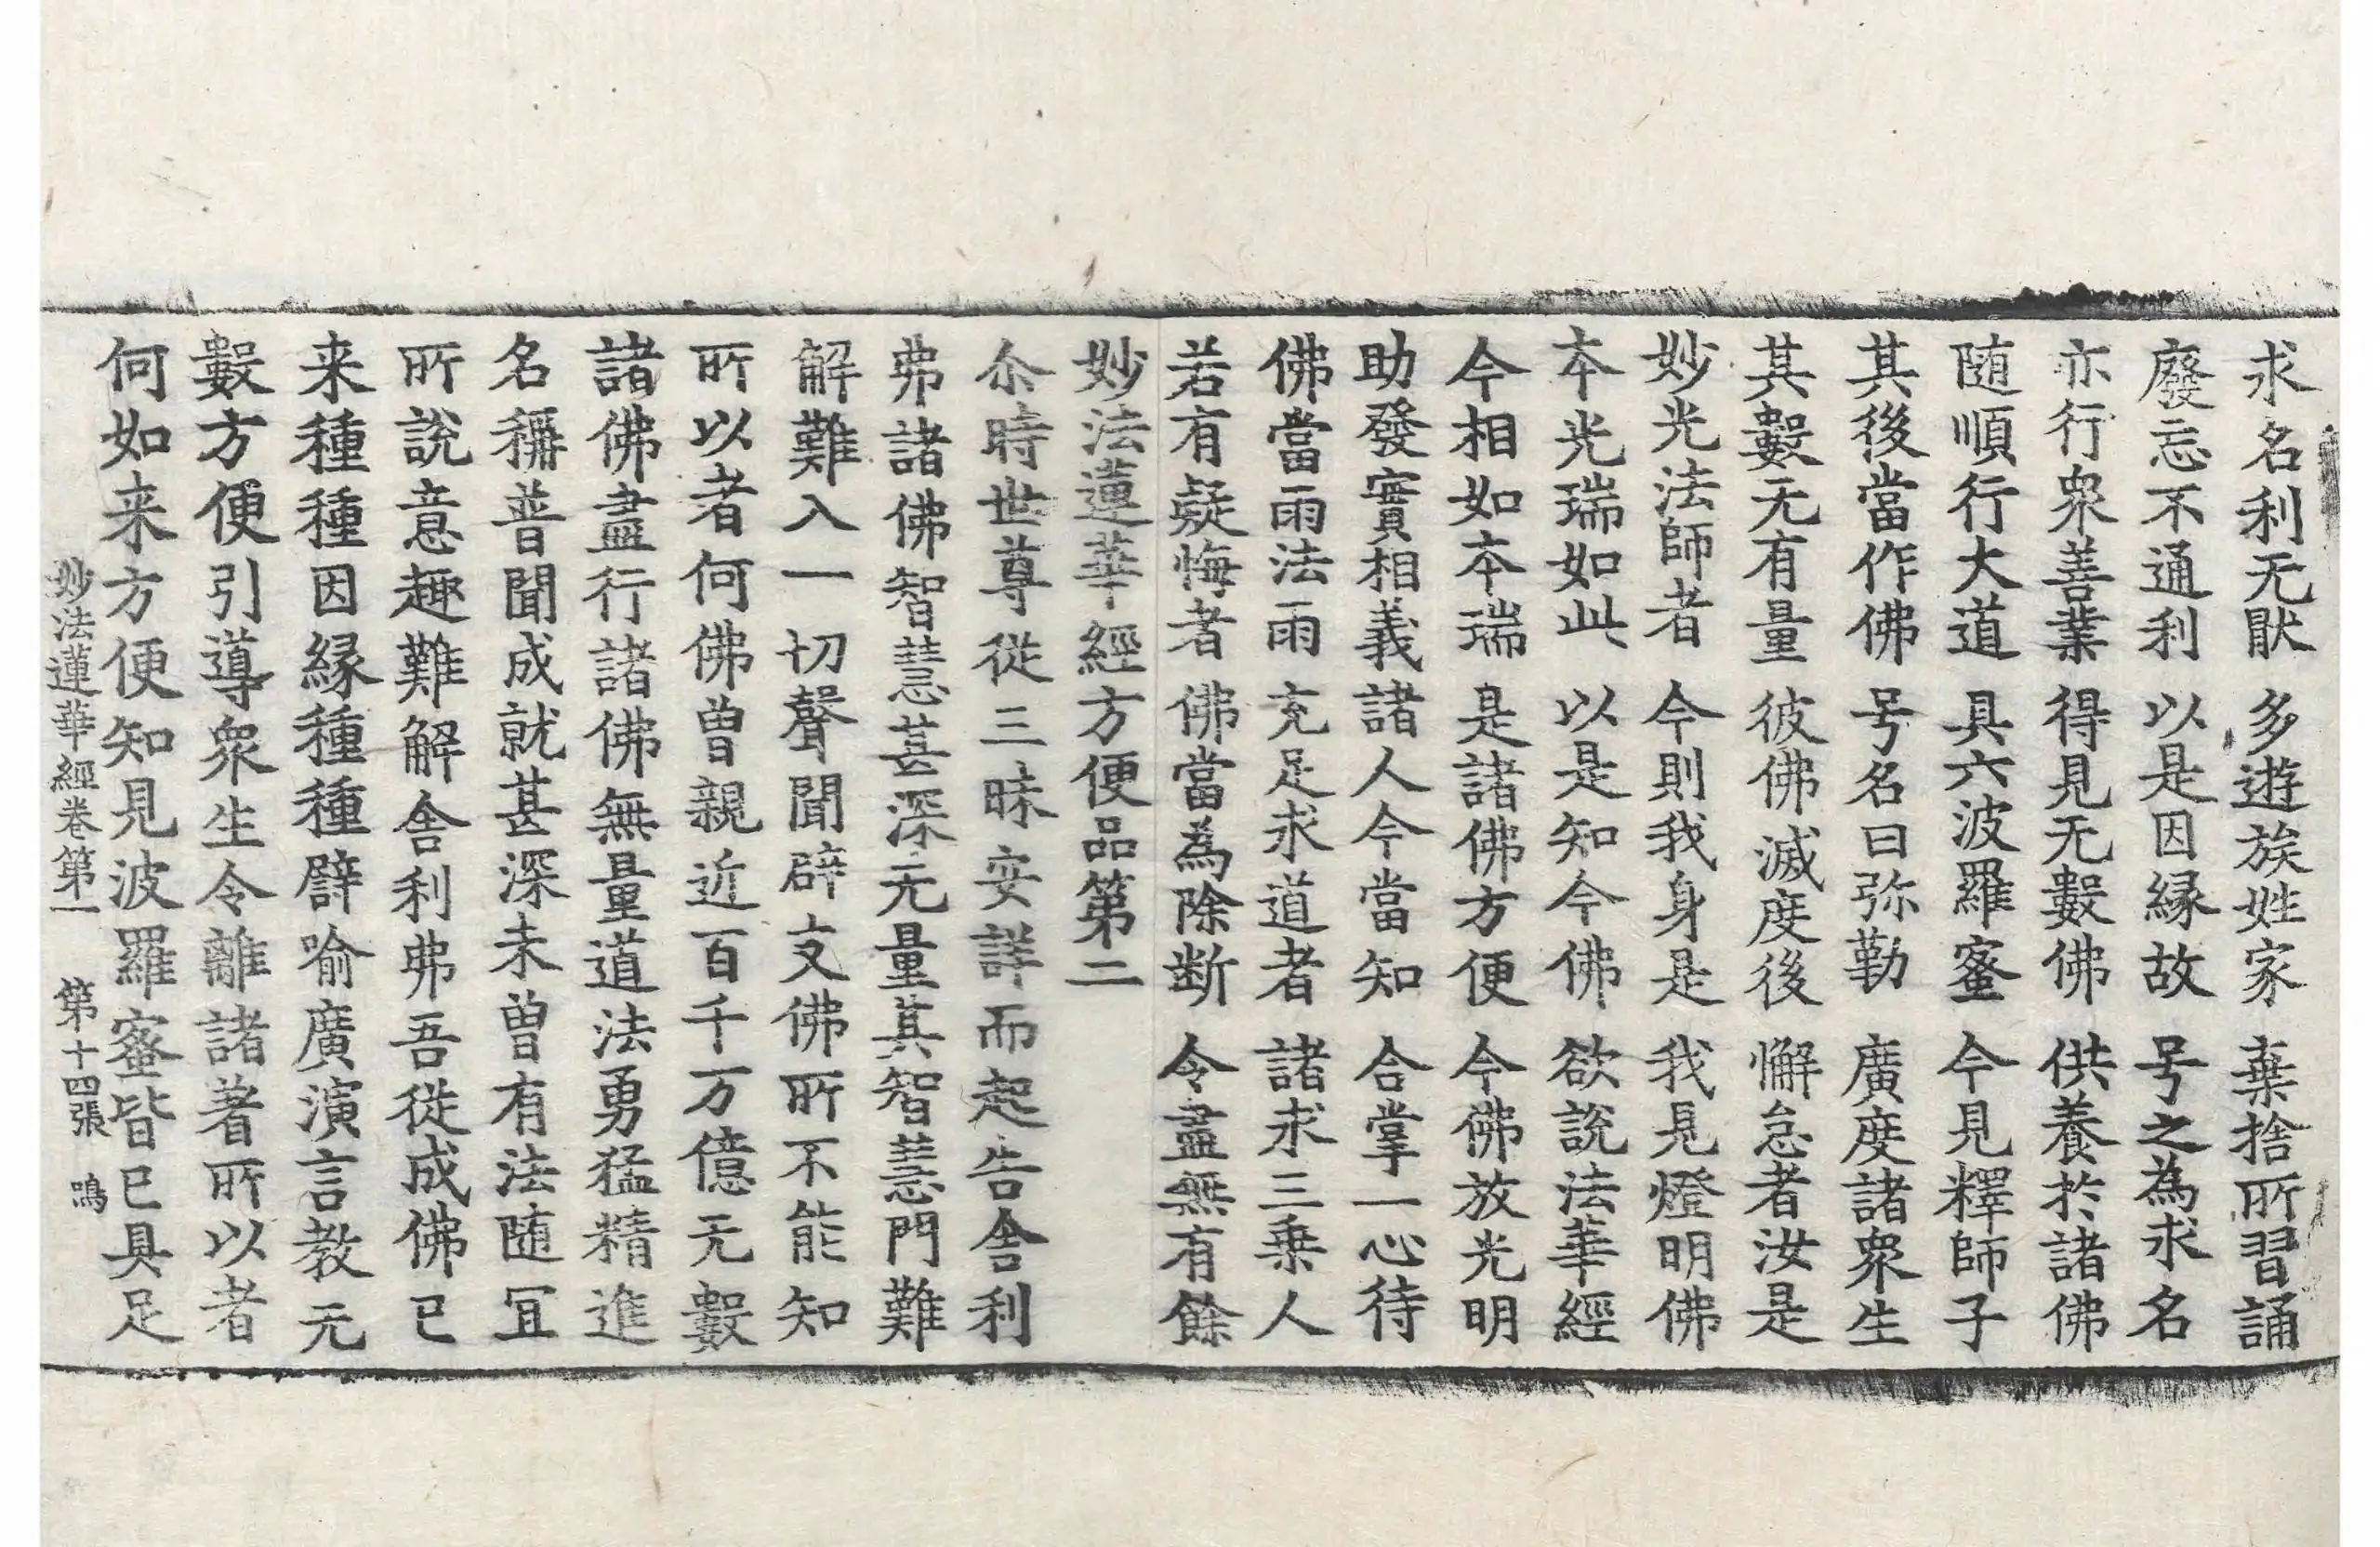 求名利无猒 多遊族姓家 棄捨所習誦
廢忘不通利 以是因縁故 号之為求名
亦行衆善業 得見无數佛 供養於諸佛
随順行大道 具六波羅蜜 今見釋師子
其後當作佛 号名曰弥勒 廣度諸衆生
其數无有量 彼佛滅度後 懈怠者汝是
妙光法師者 今則我身是 我見燈明佛
本光瑞如此 以是知今佛 欲說法華經
今相如本瑞 是諸佛方便 今佛放光明
助發實相義 諸人今當知 合掌一心待
佛當雨法雨 充足求道者 諸求三乗人
若有疑悔者 佛當為除断 令盡無有餘
妙法蓮華經方便品第二
尒時世尊從三昧安詳而起告舎利
弗諸佛智慧甚深无量其智慧門難
解難入一切聲聞辟支佛所不能知
所以者何佛曾親近百千万億无數
諸佛盡行諸佛無量道法勇猛精進
名稱普聞成就甚深未曾有法随冝
所說意趣難解舎利弗吾從成佛已
来種種因縁種種譬喻廣演言教无
數方便引導衆生令離諸著所以者
何如来方便知見波羅蜜皆已具足
妙法蓮華經卷第一 第十四張 鳴